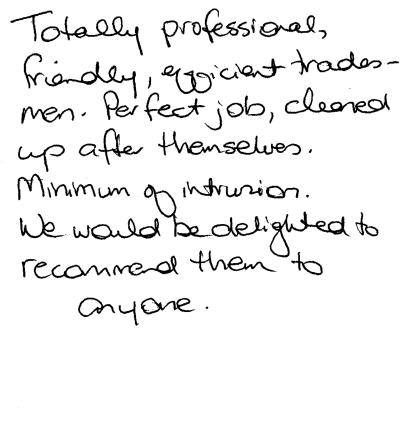 Totally professional,
friendly, efficient trades-
men. Perfect job, cleaned
up after themselves.
Minimum of intrusion.
We would be delighted to
recommend them to
anyone.